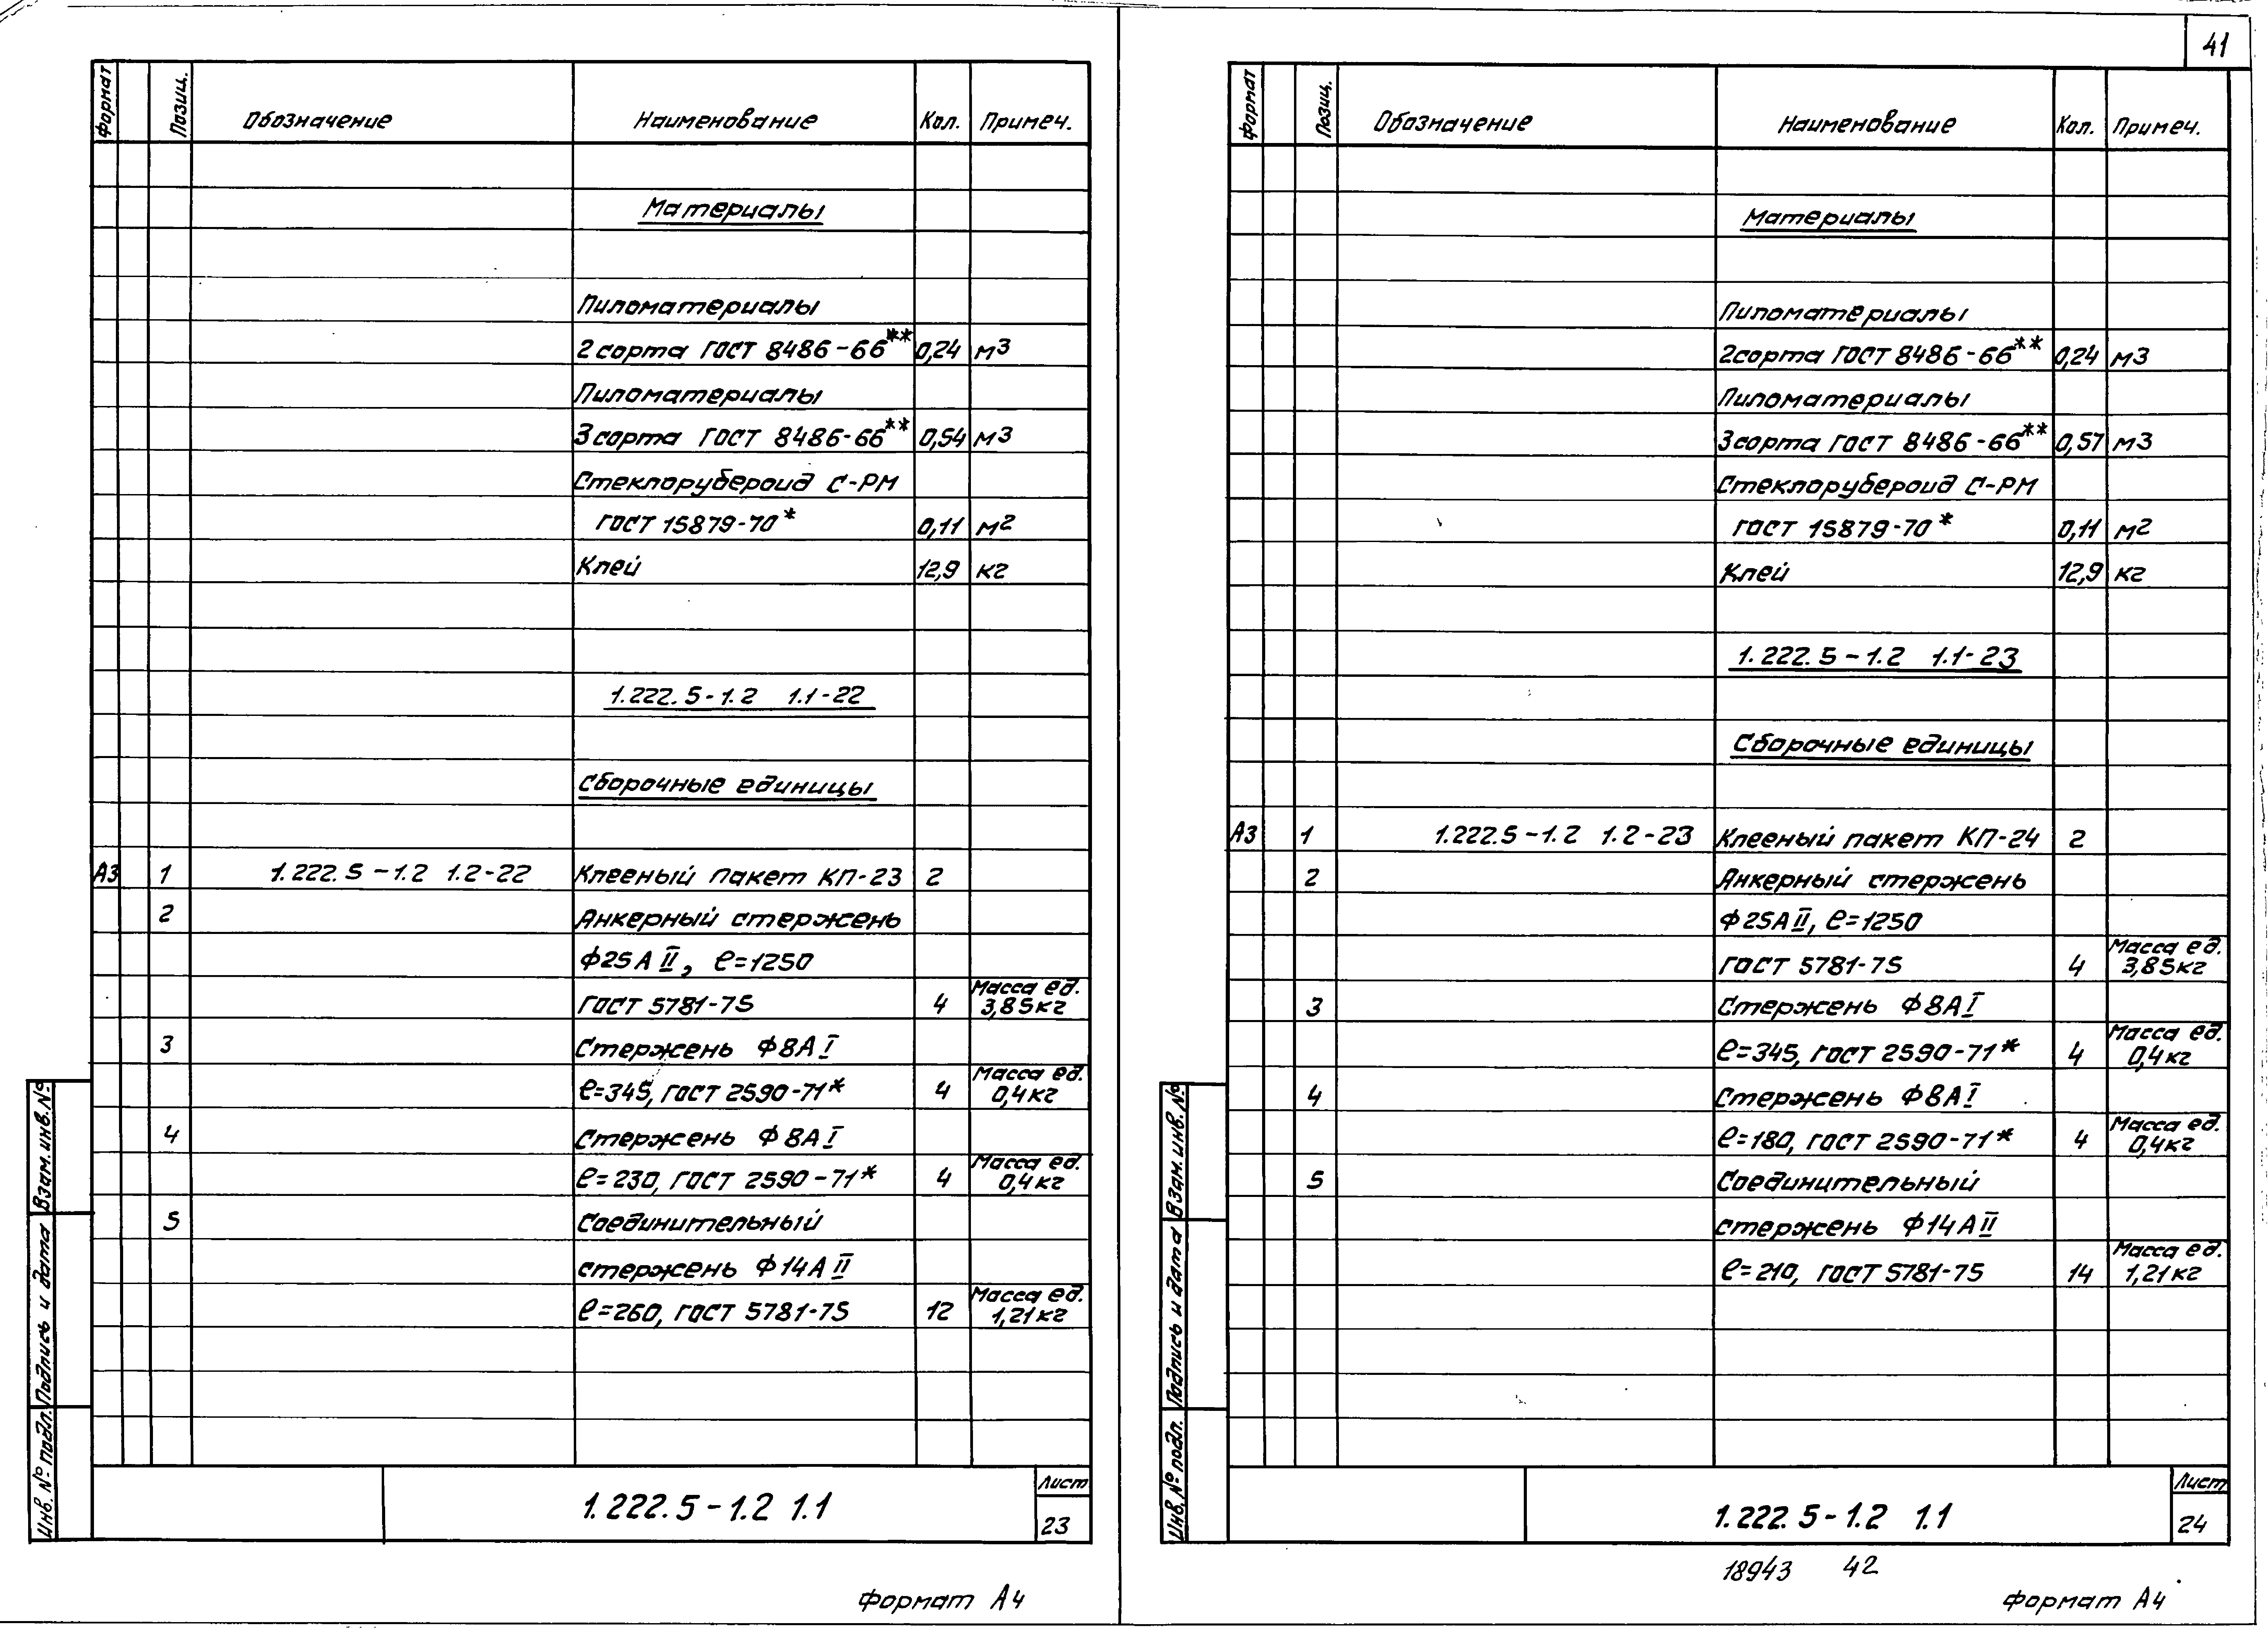 Формат Позиц. Обозначение Наименование Кол. Примеч.
Материалы
Пиломатериалы
2 сорта ГОСТ 8486-66** 0,24 м3
Пиломатериалы
3 сорта ГОСТ 8486-66** 0,54 м3
Стеклорубероид С-РМ
ГОСТ 15879-70* 0,11 м2
Клей 12,9 кг
1.222.5-1.2 1.1-22
Сборочные единицы
А3 1 1.222.5-1.2 1.2-22 Клееный пакет КП-23 2
2 Анкерный стержень
Ф25АII, ℓ=1250
ГОСТ 5781-75 4 Масса ед. 3,85кг
3 Стержень Ф8АI
ℓ=345, ГОСТ 2590-71* 4 Масса ед. 0,4кг
4 Стержень Ф8АI
ℓ=230, ГОСТ 2590-71* 4 Масса ед. 0,4кг
5 Соединительный
стержень Ф14АII
ℓ=260, ГОСТ 5781-75 12 Масса ед. 1,21кг
Инв. № подл. Подпись и дата Взам. инв. №
1.222.5-1.2 1.1
Лист
23
Формат А4
41
Формат Позиц. Обозначение Наименование Кол. Примеч.
Материалы
Пиломатериалы
2 сорта ГОСТ 8486-66** 0,24 м3
Пиломатериалы
3 сорта ГОСТ 8486-66** 0,57 м3
Стеклорубероид С-РМ
ГОСТ 15879-70* 0,11 м2
Клей 12,9 кг
1.222.5-1.2 1.1-23
Сборочные единицы
А3 1 1.222.5-1.2 1.2-23 Клееный пакет КП-24 2
2 Анкерный стержень
Ф25АII, ℓ=1250
ГОСТ 5781-75 4 Масса ед. 3,85кг
3 Стержень Ф8АI
ℓ=345, ГОСТ 2590-71* 4 Масса ед. 0,4кг
4 Стержень Ф8АI
ℓ=180, ГОСТ 2590-71* 4 Масса ед. 0,4кг
5 Соединительный
стержень Ф14АII
ℓ=210, ГОСТ 5781-75 14 Масса ед. 1,21кг
Инв. № подл. Подпись и дата Взам. инв. №
1.222.5-1.2 1.1
Лист
24
18943 42
Формат А4